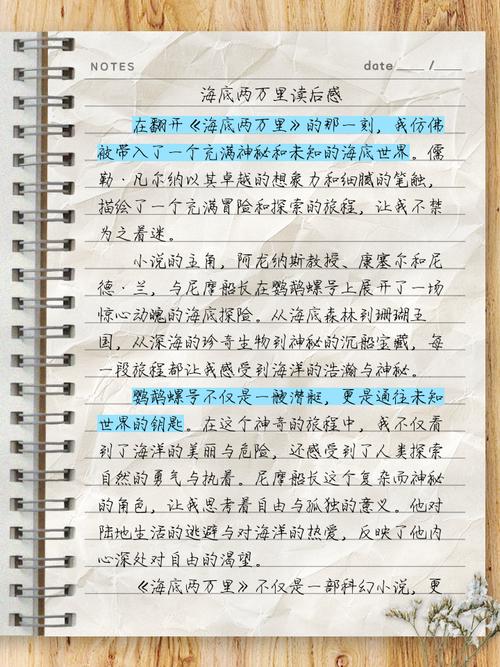 NOTES
date ____ / ____
海底两万里读后感
在翻开《海底两万里》的那一刻，我仿佛
被带入了一个充满神秘和未知的海底世界。儒
勒·凡尔纳以其卓越的想象力和细腻的笔触，
描绘了一个充满冒险和探索的旅程，让我不禁
为之着迷。
小说的主角，阿龙纳斯教授、康塞尔和尼
德·兰，与尼摩船长在鹦鹉螺号上展开了一场
惊心动魄的海底探险。从海底森林到珊瑚王
国，从深海的珍奇生物到神秘的沉船宝藏，每
一段旅程都让我感受到海洋的浩瀚与神秘。
鹦鹉螺号不仅是一艘潜艇，更是通往未知
世界的钥匙。在这个神奇的旅程中，我不仅看
到了海洋的美丽与危险，还感受到了人类探索
自然的勇气与执着。尼摩船长这个复杂而神秘
的角色，让我思考着自由与孤独的意义。他对
陆地生活的逃避与对海洋的热爱，反映了他内
心深处对自由的渴望。
《海底两万里》不仅是一部科幻小说，更